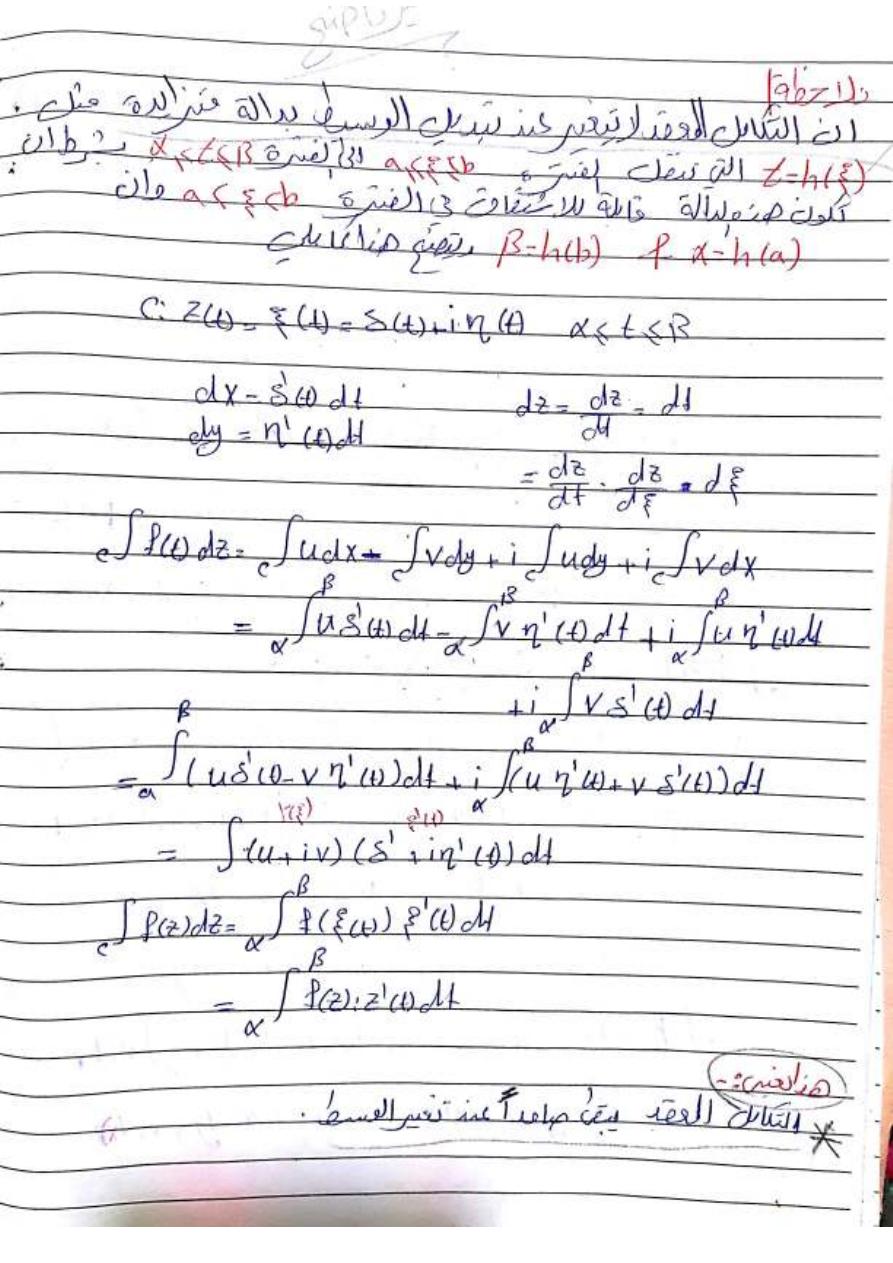 ملاحظة
ان التكامل المعقد لا يتغير عند تبديل الوسيط بدالة متزايدة مثل
t=h(ξ) التي تنقل الفترة a≤ξ≤b الى الفترة α≤t≤β بشرط ان
تكون هذه الدالة قابلة للاشتقاق في الفترة a<ξ<b وان
α=h(a) β=h(b) ويتضح هذا كما يلي
C: Z(t) = ξ(t) = δ(t)+iη(t) α≤t≤β
dx = δ'(t) dt dz = dz/dt = dt
dy = η'(t) dt
= dz/dt · dz/dξ · dξ
c∫f(t) dz = c∫udx - c∫vdy + i c∫udy + i c∫vdx
= α∫β uδ'(t) dt - α∫β v η'(t) dt + i α∫β u η'(t) dt
+ i α∫β v δ'(t) dt
= a∫β (uδ'(t) - v η'(t)) dt + i α∫β (u η'(t) + v δ'(t)) dt
= ∫(u+iv) (δ' + iη'(t)) dt
c∫f(z)dz = α∫β f(ξ(t)) ξ'(t) dt
= α∫β f(z) · z'(t) dt
هذا يعني:-
* التكامل المعقد يبقى صامداً عند تغير الوسيط.